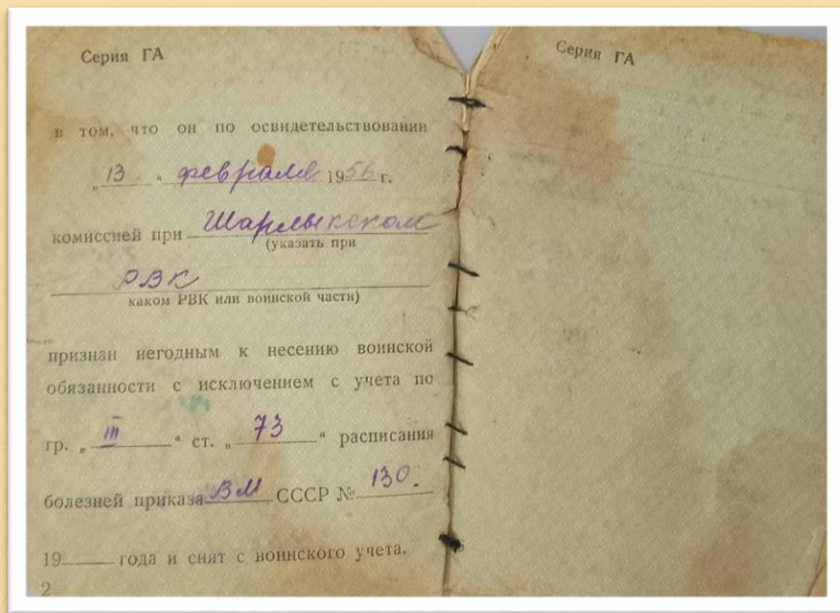 Серия ГА
в том, что он по освидетельствовании
„13" февраля 1956 г.
комиссией при Шарлыкском
(указать при
РВК
каком РВК или воинской части)
признан негодным к несению воинской
обязанности с исключением с учета по
гр. „III" ст. „73" расписания
болезней приказа ВМ СССР № 130.
19____ года и снят с воинского учета.
2
Серия ГА